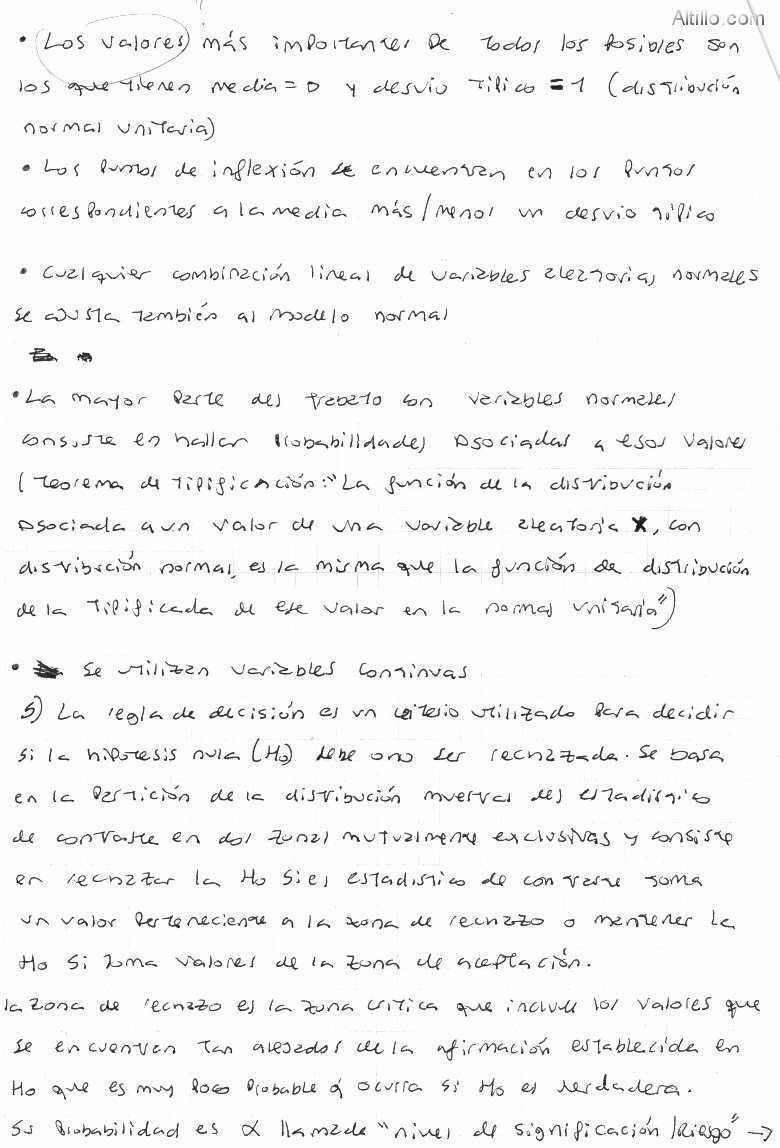 Altillo.com
• Los valores más importantes de todos los posibles son
los que tienen media = 0 y desvío típico = 1 (distribución
normal unitaria)
• Los puntos de inflexión se encuentran en los puntos
correspondientes a la media más/menos un desvío típico
• Cualquier combinación lineal de variables aleatorias normales
se ajusta también al modelo normal
• La mayor parte del trabajo con variables normales
consiste en hallar probabilidades asociadas a esos valores
(Teorema de tipificación: "La función de la distribución
asociada a un valor de una variable aleatoria X, con
distribución normal, es la misma que la función de distribución
de la tipificada de ese valor en la normal unitaria")
• Se utilizan variables continuas
5) La regla de decisión es un criterio utilizado para decidir
si la hipótesis nula (H0) debe o no ser rechazada. Se basa
en la partición de la distribución muestral del estadístico
de contraste en dos zonas mutualmente exclusivas y consiste
en rechazar la Ho si el estadístico de contraste toma
un valor perteneciente a la zona de rechazo o mantener la
Ho si toma valores de la zona de aceptación.
la zona de rechazo es la zona crítica que incluye los valores que
se encuentran tan alejados de la afirmación establecida en
Ho que es muy poco probable q ocurra si Ho es verdadera.
Su probabilidad es α llamada "nivel de significación/Riesgo" →